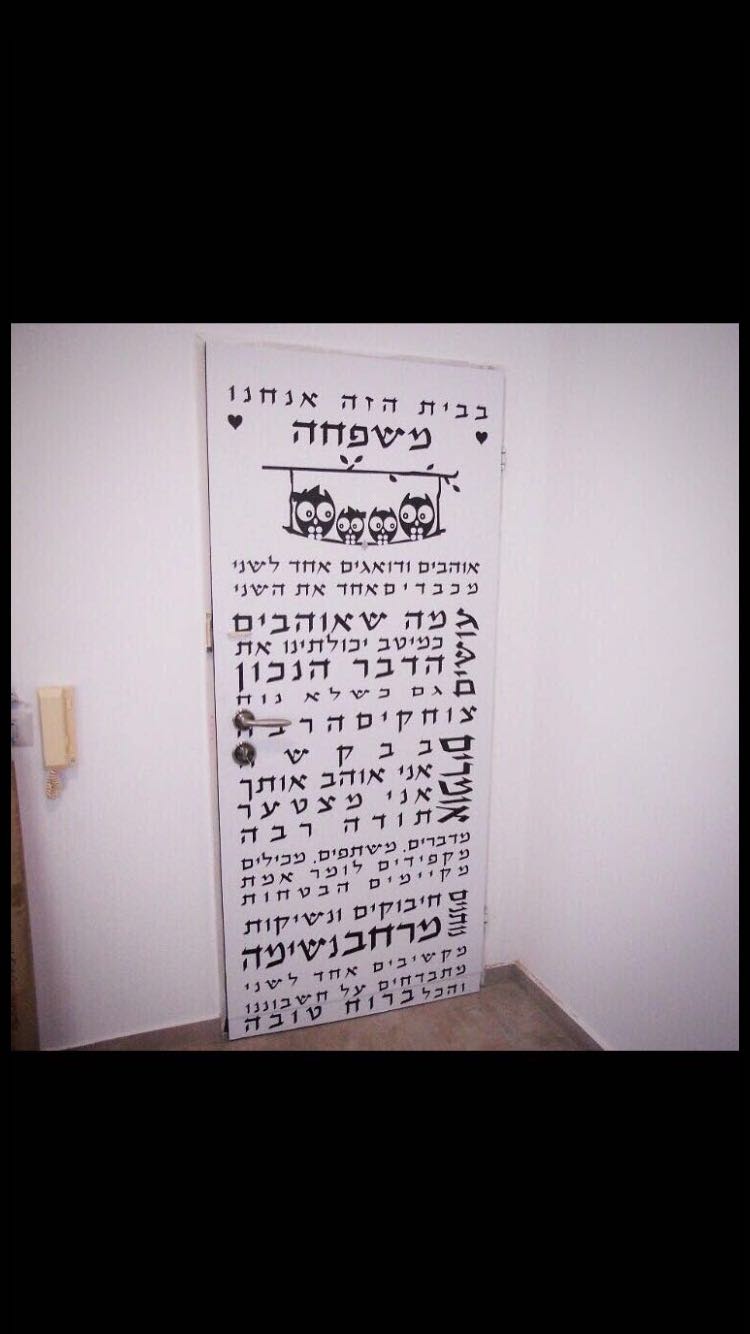 בבית הזה אנחנו
משפחה
אוהבים ודואגים אחד לשני
מכבדים אחד את השני
עושים
מה שאוהבים
כמיטב יכולתינו את
הדבר הנכון
גם כשלא נוח
צוחקים הרבה
אומרים
בבקשה
אני אוהב אותך
אני מצטער
תודה רבה
מדברים. משתפים. מכילים
מקפידים לומר אמת
מקיימים הבטחות
נותנים
חיבוקים ונשיקות
מרחב נשימה
מקשיבים אחד לשני
מתבדחים על חשבוננו
והכל ברוח טובה